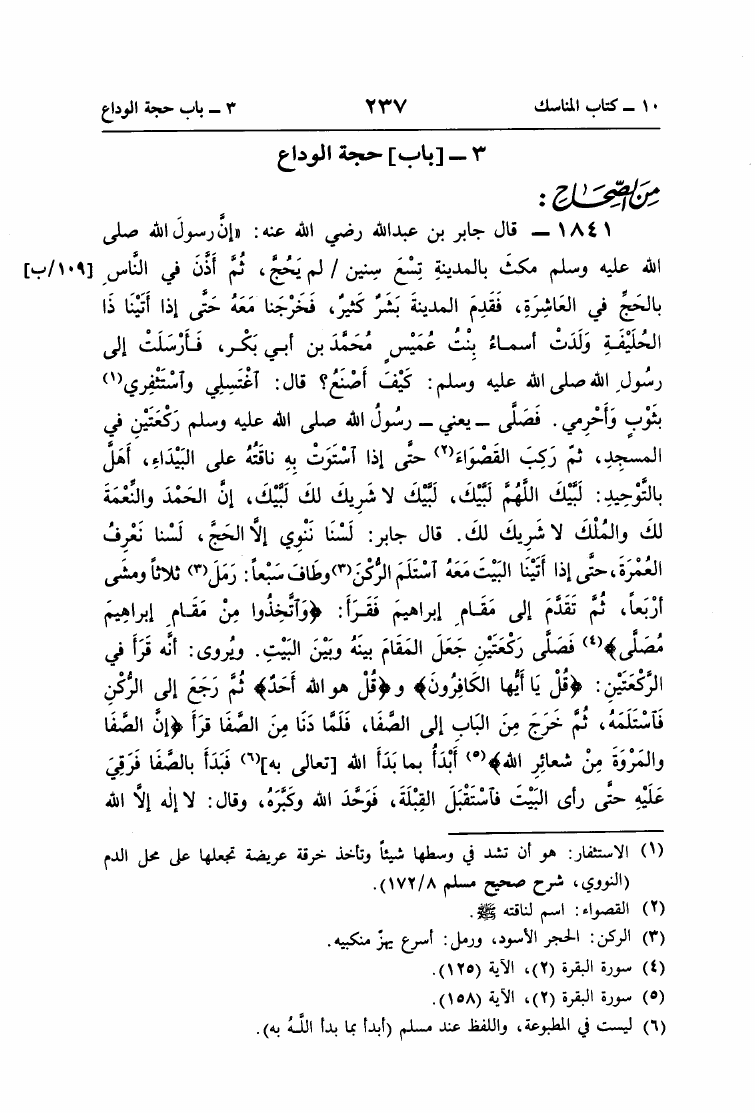 ١٠ ـ كتاب المناسك ٢٣٧ ٣ ـ باب حجة الوداع
٣ ـ [باب] حجة الوداع
مِنَ الصِّحَاحِ :
١٨٤١ ـ قال جابر بن عبدالله رضي الله عنه: «إنَّ رسولَ الله صلى
الله عليه وسلم مكثَ بالمدينةِ تِسْعَ سِنين / لم يَحُجَّ، ثُمَّ أَذَّنَ في النَّاسِ [١٠٩/ب]
بالحَجِّ في العَاشِرَةِ، فَقَدِمَ المدينةَ بَشَرٌ كَثيرٌ، فَخَرَجْنا مَعَهُ حَتَّى إذا أَتَيْنَا ذَا
الحُلَيْفَةِ وَلَدَتْ أسماءُ بِنْتُ عُمَيْسٍ مُحَمَّدَ بن أبي بَكْر، فَأَرْسَلَتْ إلى
رسُولِ الله صلى الله عليه وسلم: كَيْفَ أَصْنَعُ؟ قال: ٱغْتَسِلي وٱستَثْفِري(١)
بثَوْبٍ وَأَحْرِمي. فَصَلَّى ـ يعني ـ رسُولُ الله صلى الله عليه وسلم رَكْعَتَيْنِ في
المسجدِ، ثمَّ رَكِبَ القَصْوَاءَ(٢) حتَّى إذا ٱسْتَوَتْ بِهِ ناقتُهُ على البَيْدَاءِ، أَهَلَّ
بالتَّوْحِيدِ: لَبَّيْكَ اللَّهُمَّ لَبَّيْكَ، لَبَّيْكَ لا شريكَ لكَ لَبَّيْكَ، إنَّ الحَمْدَ والنِّعْمَةَ
لكَ والمُلْكَ لا شَرِيكَ لكَ. قال جابر: لَسْنَا نَنْوِي إلاَّ الحَجَّ، لَسْنا نَعْرِفُ
العُمْرَةَ، حتَّى إذا أَتَيْنَا البَيْتَ مَعَهُ ٱسْتَلَمَ الرُّكْنَ(٣) وطَافَ سَبْعاً: رَمَلَ(٣) ثلاثاً ومشى
أرْبَعاً، ثُمَّ تَقَدَّمَ إلى مَقَامِ إبراهيمَ فَقَرَأَ: ﴿وَٱتَّخِذُوا مِنْ مَقَامِ إبراهيمَ
مُصَلًّى﴾(٤) فَصَلَّى رَكْعَتَيْنِ جَعَلَ المَقَامَ بينَهُ وبَيْنَ البَيْتِ. ويُروى: أنَّه قَرَأَ في
الرَّكْعَتَيْنِ: ﴿قُلْ يَا أَيُّها الكَافِرُونَ﴾ و﴿قُلْ هو الله أَحَدٌ﴾ ثُمَّ رَجَعَ إلى الرُّكْنِ
فَٱسْتَلَمَهُ، ثُمَّ خَرَجَ مِنَ البَابِ إلى الصَّفا، فَلَمَّا دَنَا مِنَ الصَّفَا قرَأَ ﴿إنَّ الصَّفَا
والمَرْوَةَ مِنْ شعائِرِ الله﴾(٥) أَبْدَأُ بما بَدَأَ الله [تعالى به](٦) فَبَدَأَ بالصَّفَا فَرَقِيَ
عَلَيْهِ حتَّى رأى البَيْتَ فٱسْتَقْبَلَ القِبْلَةَ، فوَحَّدَ الله وكَبَّرَهُ، وقال: لا إله إلاَّ الله
(١) الاستثفار: هو أن تشد في وسطها شيئاً وتأخذ خرقة عريضة تجعلها على محل الدم
(النووي، شرح صحيح مسلم ١٧٢/٨).
(٢) القصواء: اسم لناقته ﷺ.
(٣) الركن: الحجر الأسود، ورمل: أسرع يهزّ منكبيه.
(٤) سورة البقرة (٢)، الآية (١٢٥).
(٥) سورة البقرة (٢)، الآية (١٥٨).
(٦) ليست في المطبوعة، واللفظ عند مسلم (أبدأ بما بدأ اللَّهُ به).